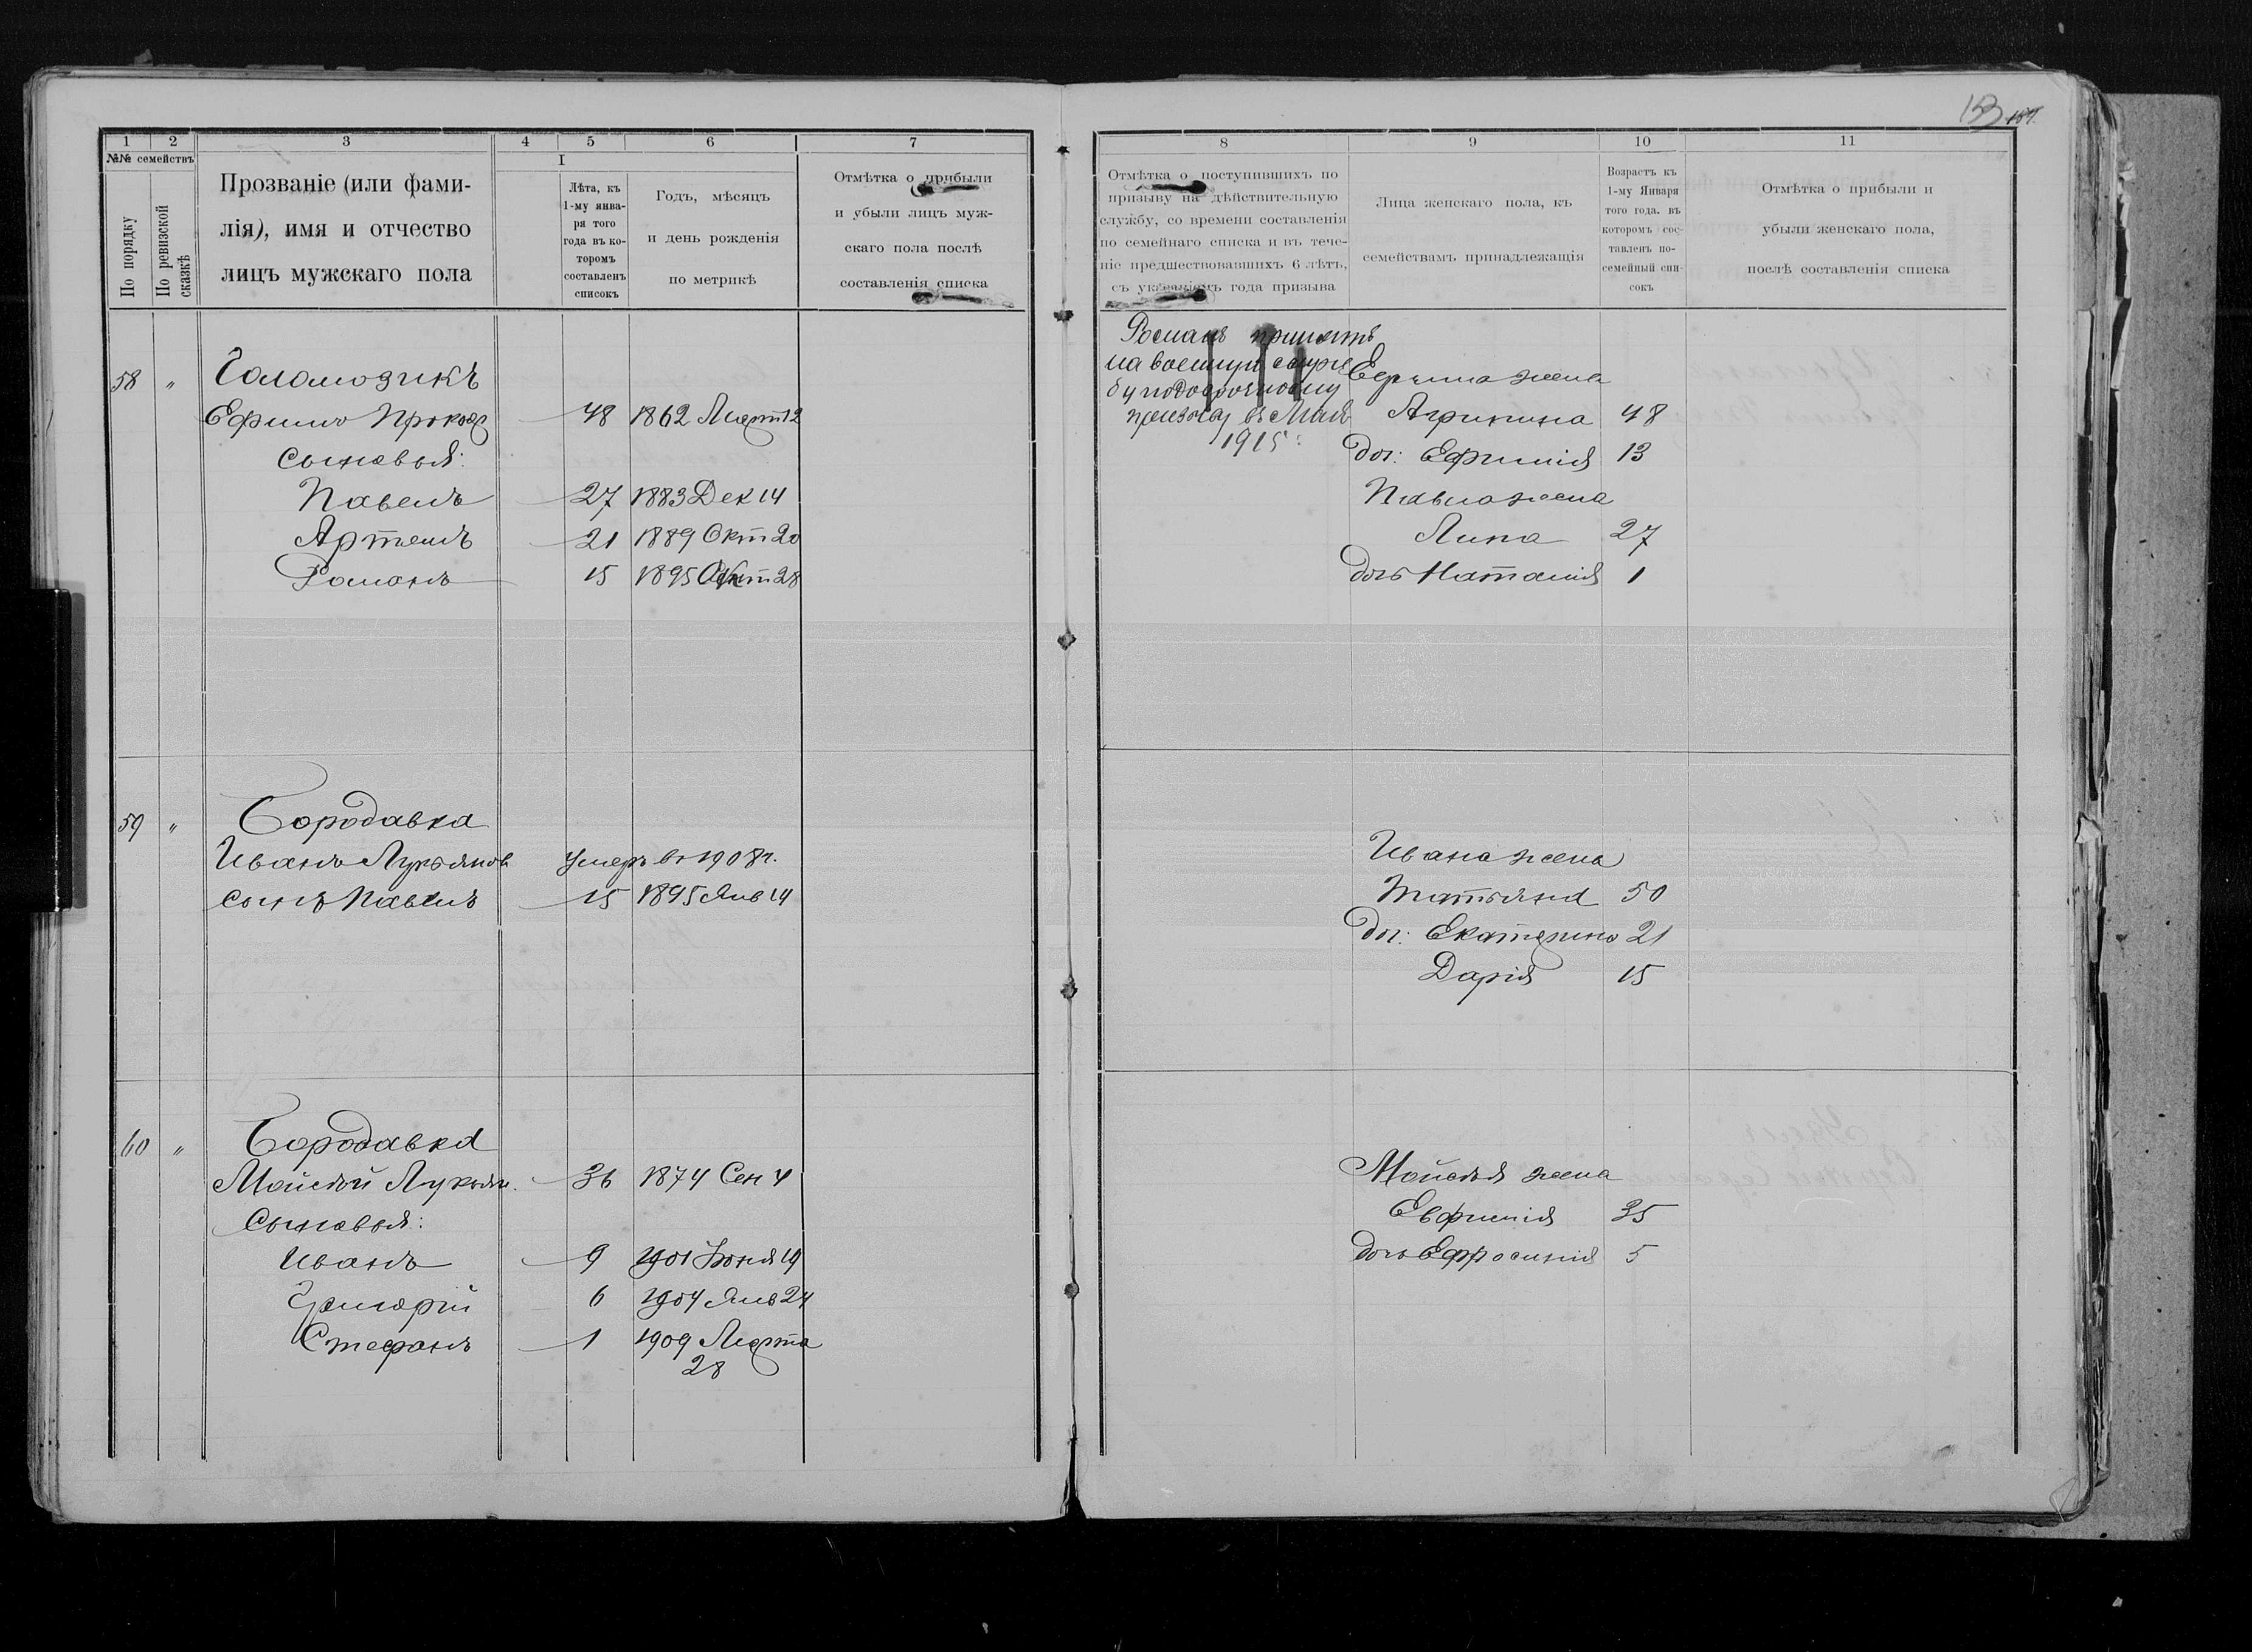 153 187.
1 2 3 4 5 6 7
№№ семействъ
По порядку
По ревизской сказкѣ
Прозваніе (или фами-
лія), имя и отчество
лицъ мужскаго пола
I
Лѣта, къ
1-му янва-
ря того
года въ ко-
торомъ
составленъ
списокъ
Годъ, мѣсяцъ
и день рожденія
по метрикѣ
Отмѣтка о прибыли
и убыли лицъ муж-
скаго пола послѣ
составленія списка
58 " Галамозикъ
Ефимъ Прокоф 48 1862 Март 12
Сыновья:
Павелъ 27 1883 Дек 14
Артемъ 21 1889 Окт 20
Романъ 15 1895 Окт 28
59 " Бородавка
Иванъ Лукьянов умеръ въ 1908 г.
сынъ Павелъ 15 1895 Янв 14
60 " Бородавка
Мойсей Лукьян. 36 1874 Сен 4
Сыновья:
Иванъ 9 1901 Іюня 19
Григорій 6 1904 Янв 24
Стефанъ 1 1909 Марта
28
8 9 10 11
Отмѣтка о поступившихъ по
призыву на дѣйствительную
службу, со времени составленія
по семейнаго списка и въ тече-
ніе предшествовавшихъ 6 лѣтъ,
съ указаніемъ года призыва
Лица женскаго пола, къ
семействамъ принадлежащія
Возрастъ къ
1-му Января
того года. въ
которомъ сос-
тавленъ по-
семейный спи-
сокъ
Отмѣтка о прибыли и
убыли женскаго пола,
послѣ составленія списка
Романъ принятъ
на военную служ
бу по досрочному
призыву въ Маѣ
1915
Ефима жена
Агрипина 48
доч: Ефимія 13
Павла жена
Анна 27
дочь Наталія 1
Ивана жена
Татьяна 50
доч: Екатерина 21
Дарія 15
Мойсея жена
Евфимія 35
дочь Ефросинія 5